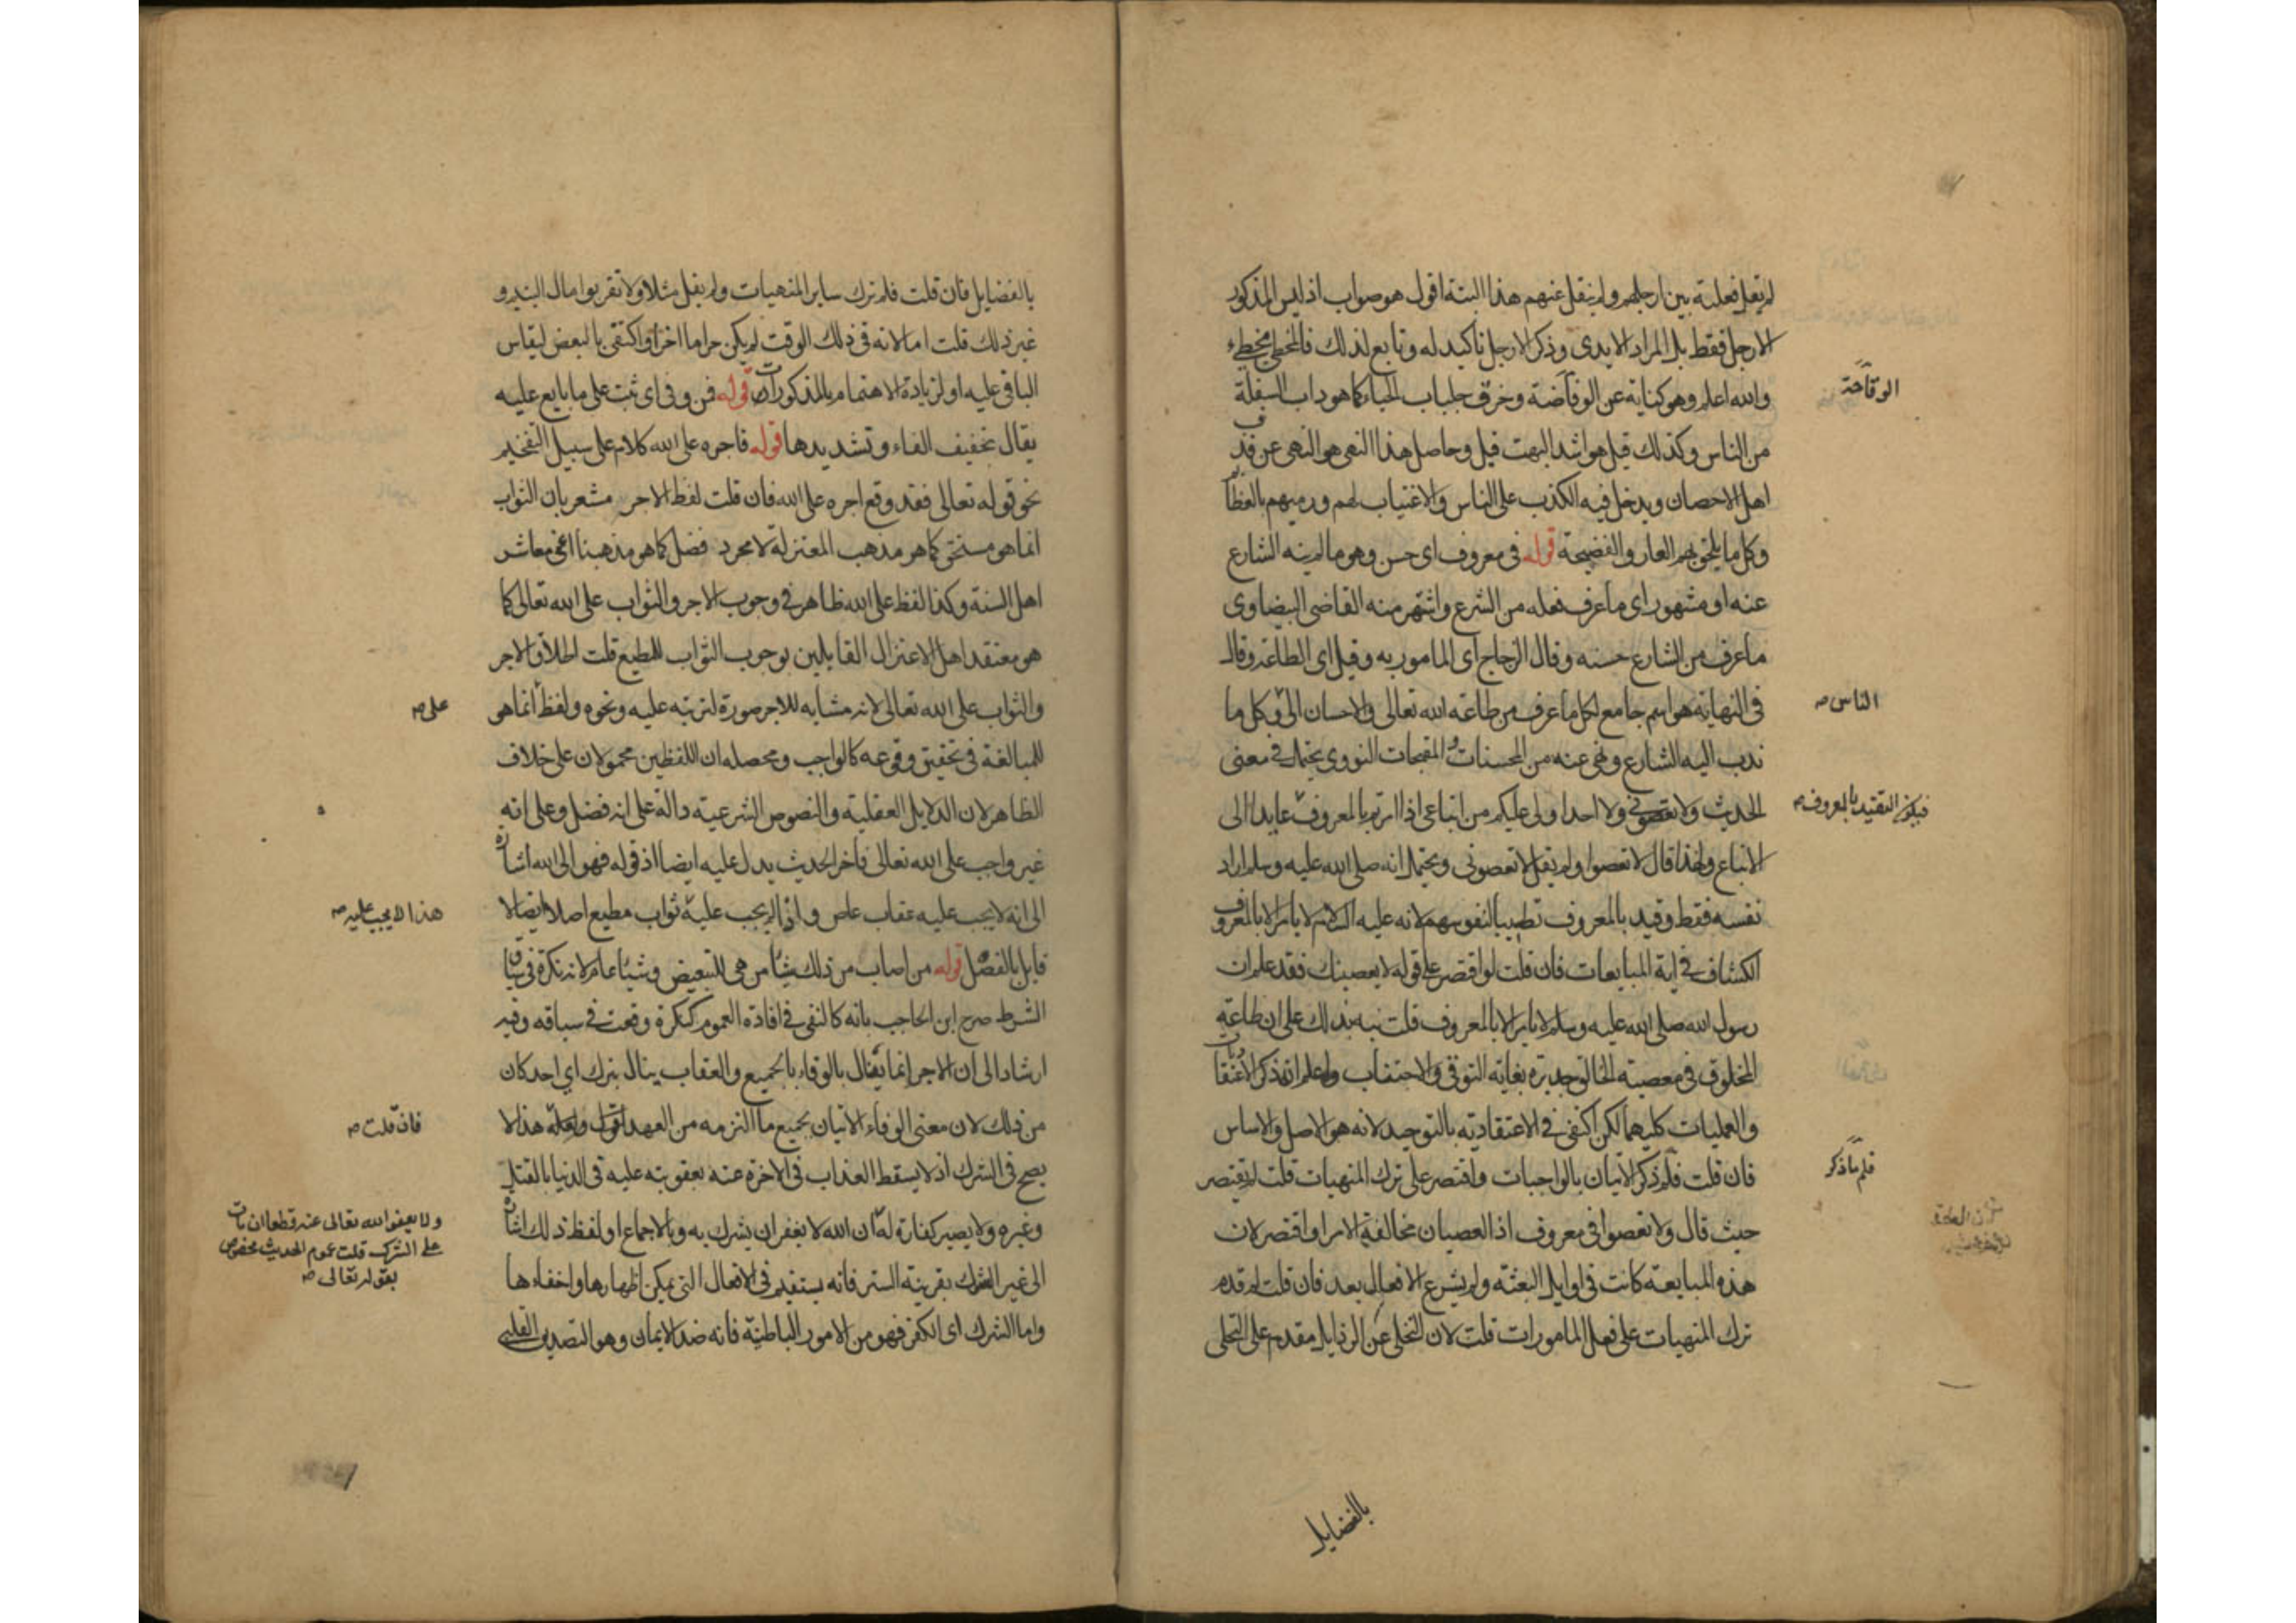 لم يقل فعلته بين ارجلهم ولم ينقل عنهم هذا البتة اقول هو صواب اذ ليس المذكور
الارجل فقط بل المراد الايدى وذكر الارجل تأكيد له وتابع لذلك فالمخطئ مخطىء
والله اعلم وهو كناية عن الوقاحة وخرق جلباب الحياء كما هو داب السفلة
من الناس وكذلك قيل هو اشد البهت قيل وحاصل هذا النهى هو النهى عن قذف
اهل الاحصان ويدخل فيه الكذب على الناس والاغتياب لهم ورميهم بالعظائم
وكل ما يلحق بهم العار والفضيحة قوله فى معروف اى حسن وهو ما لم ينه الشارع
عنه او مشهور اى ما عرف فعله من الشرع واشتهر منه القاضى البيضاوى
ما عرف من الشارع حسنه وقال الزجاج اى المامور به وقيل اى الطاعة وقال
فى النهاية هو اسم جامع لكل ما عرف من طاعة الله تعالى والاحسان الى وكل ما
ندب اليه الشارع ونهى عنه من المحسنات والمقبحات النووى يحتمل فى معنى
الحديث ولا تعصونى ولا احد اولى عليكم من اتباعى اذا امرتم بالمعروف عايدا الى
الاتباع ولهذا قال لا تعصوا ولم يقل لا تعصونى ويحتمل انه صلى الله عليه وسلم اراد
نفسه فقط وقيد بالمعروف تطييبا لنفوسهم لانه عليه السلام لا يامر الا بالمعروف
الكشاف فى اية المبايعات فان قلت لو اقتصر على قوله لا يعصينك فقد علم ان
رسول الله صلى الله عليه وسلم لا يامر الا بالمعروف قلت نبه بذلك على ان طاعة
المخلوق فى معصية الخالق جديرة بغاية التوقى والاجتناب واعلم انه ذكر الاعتقاديات
والعمليات كليهما لكن اكتفى فى الاعتقادية بالتوحيد لانه هو الاصل والاساس
فان قلت فلم ذكر الاتيان بالواجبات واقتصر على ترك المنهيات قلت لم يقتصر
حيث قال ولا تعصوا فى معروف اذ العصيان مخالفة الامر او اقتصر لان
هذه المبايعة كانت فى اوايل البعثة ولم يشرع الافعال بعد فان قلت لم قدم
ترك المنهيات على فعل المامورات قلت لان التخلى عن الرذايل مقدم على التحلى
بالفضايل
الوقاحة
الناس صح
فيكون التقييد بالمعروف صح
فلم ما ذكر
بالفضايل فان قلت فلم ترك ساير المنهيات ولم يقل مثلا ولا تقربوا مال اليتيم و
غير ذلك قلت اما لانه فى ذلك الوقت لم يكن حراما اخر او اكتفى بالبعض ليقاس
الباقى عليه او لزيادة الاهتمام بالمذكورات قوله فمن وفى اى ثبت على ما بايع عليه
يقال بتخفيف الفاء وتشديدها قوله فاجره على الله كلام على سبيل التفخيم
نحو قوله تعالى فقد وقع اجره على الله فان قلت لفظ الاجر مشعر بان الثواب
انما هو مستحق كما هو مذهب المعتزلة لا مجرد فضل كما هو مذهبنا اعنى معاشر
اهل السنة وكذا لفظ على الله ظاهر فى وجوب الاجر والثواب على الله تعالى كما
هو معتقد اهل الاعتزال القايلين بوجوب الثواب للمطيع قلت اطلاق الاجر
والثواب على الله تعالى لانه مشابه للاجر صورة لترتبه عليه ونحوه ولفظ انما هى
للمبالغة فى تحقيق وقوعه كالواجب ومحصله ان اللفظين محمولان على خلاف
الظاهر لان الدلايل العقلية والنصوص الشرعية دالة على انه فضل وعلى انه
غير واجب على الله تعالى فاخر الحديث يدل عليه ايضا اذ قوله فهو الى الله اشارة
الى انه لا يجب عليه عقاب عاص واذا لم يجب عليه ثواب مطيع اصلا ايضا لا
قايل بالفصل قوله من اصاب من ذلك شيئا من هى للتبعيض وشيئا عام لانه نكرة فى سياق
الشرط صرح ابن الحاجب بانه كالنفى فى افادة العموم كنكرة وقعت فى سياقه وفيه
ارشاد الى ان الاجر انما ينال بالوفاء بالجميع والعقاب ينال بترك اى احد كان
من ذلك لان معنى الوفاء الاتيان بجميع ما التزمه من العهد هذا لا
يصح فى الشرك اذ لا يسقط العذاب فى الاخرة عنه بعقوبته عليه فى الدنيا بالقتل
وغيره ولا يصير كفارة له ان الله لا يغفر ان يشرك به وبالاجماع او لفظ ذلك اشارة
الى غير الشرك بقرينة الستر فانه يستقيم فى الافعال التى يمكن اظهارها واخفاءها
واما الشرك اى الكفر فهو من الامور الباطنة فانه ضد الايمان وهو التصديق القلبى
على صح
هذا لا يجب عليه صح
فان قلت صح
ولا يعفو الله تعالى عنه قطعا ان مات
على الشرك قلت عموم الحديث مخصوص
بقوله تعالى صح